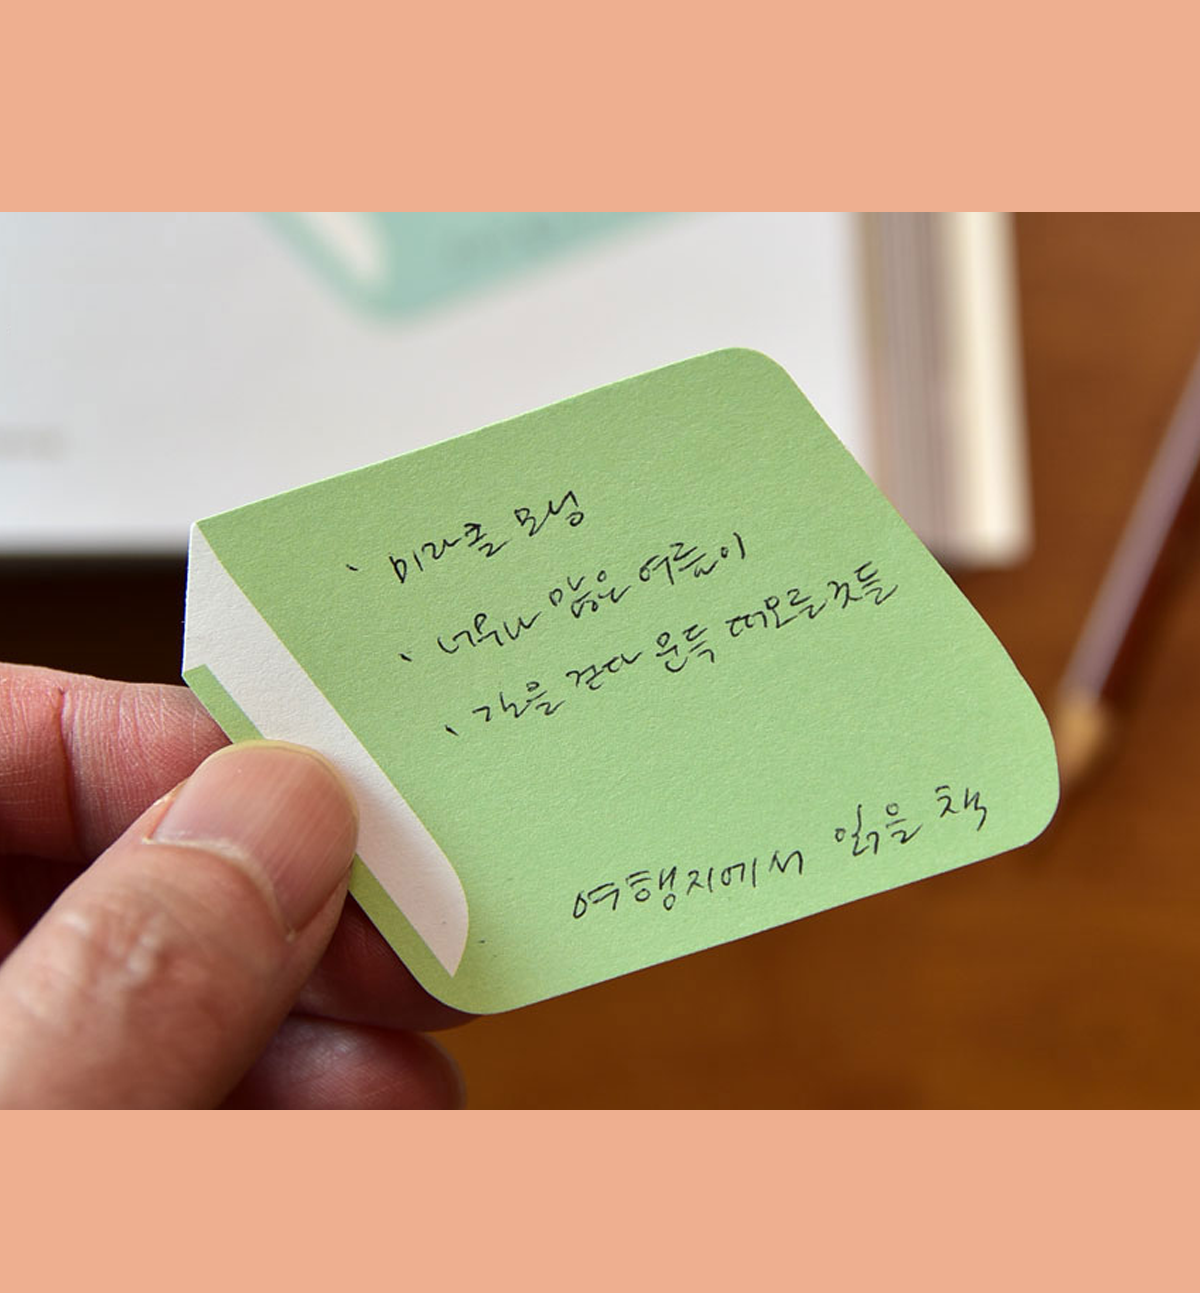 、미라클 모닝
、너무나 많은 여름이
、길을 걷다 문득 떠오른 것들
여행지에서 읽을 책